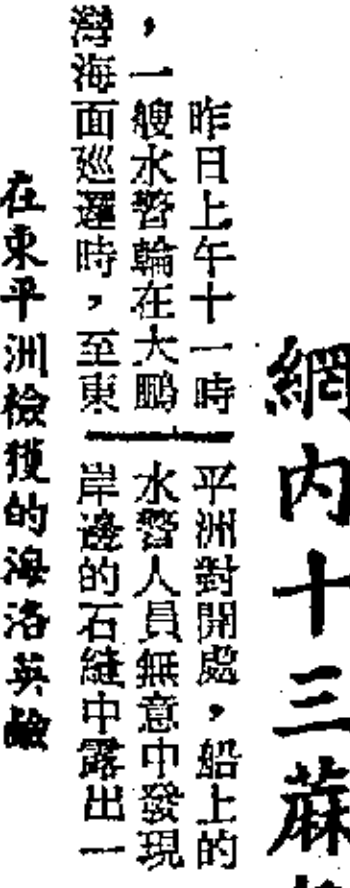 網内十三蔴
昨日上午十一時
，一艘水警輪在大鵬
灣海面巡邏時，至東
平洲對開處，船上的
水警人員無意中發現
岸邊的石縫中露出一
在東平洲檢獲的海洛英鹼